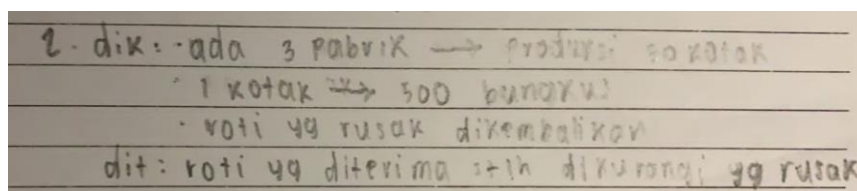 2. dik : · ada 3 pabrik → produksi 50 kotak
· 1 kotak → 500 bungkus
· roti yg rusak dikembalikan
dit : roti yg diterima stlh dikurangi yg rusak